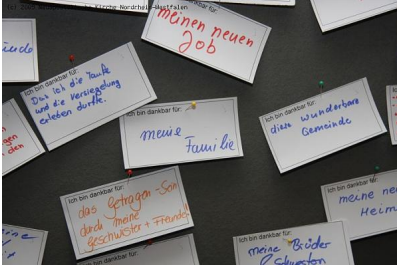 Kirche Nordrhein-Westfalen
meinen neuen
Job
Ich bin dankbar für:
Das ich die Taufe
und die Versiegelung
erleben durfte.
Ich bin dankbar für:
meine
Familie
Ich bin dankbar für:
diese wunderbare
Gemeinde
den
Ich bin dankbar für:
das Getragen-Sein
durch meine
Geschwister + Freunde!
Ich bin dankbar für:
meine
Heim
Ich bin dankbar für:
meine Brüder
Ich bin dankbar für: